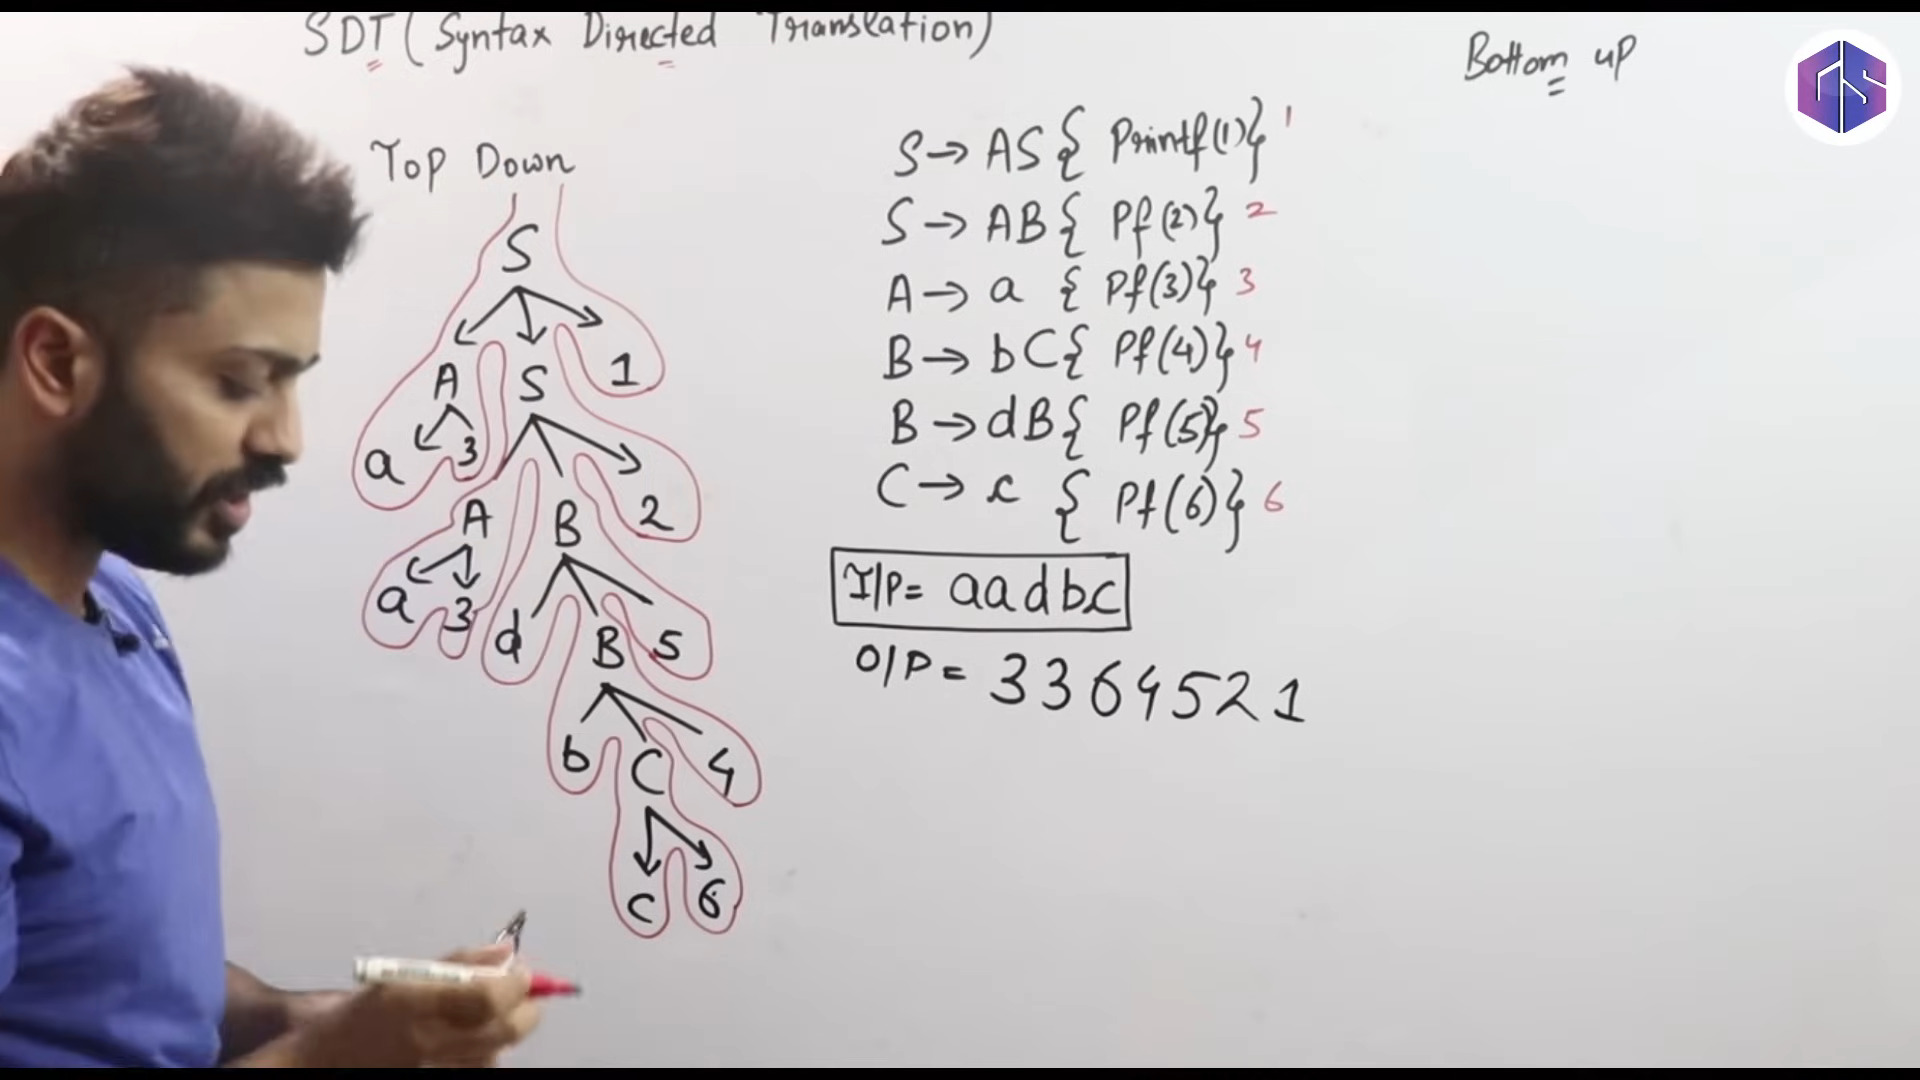 SDT ( Syntax Directed Translation)
Bottom up
GS
Top Down
S
A S 1
a 3
A B 2
a 3
d B 5
b C 4
c 6
S → AS { Printf(1)} 1
S → AB { Pf(2)} 2
A → a { Pf(3)} 3
B → bC { Pf(4)} 4
B → dB { Pf(5)} 5
C → c { Pf(6)} 6
I/P = aadbc
O/P = 3364521